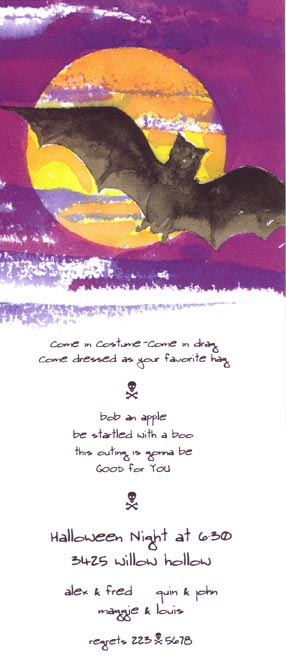 Come in Costume-Come in drag
Come dressed as your favorite hag
bob an apple
be startled with a boo
this outing is gonna be
GOOD for YOU
Halloween Night at 6:30
3425 willow hollow
alex & fred quin & john
maggie & louis
regrets 223☠5678